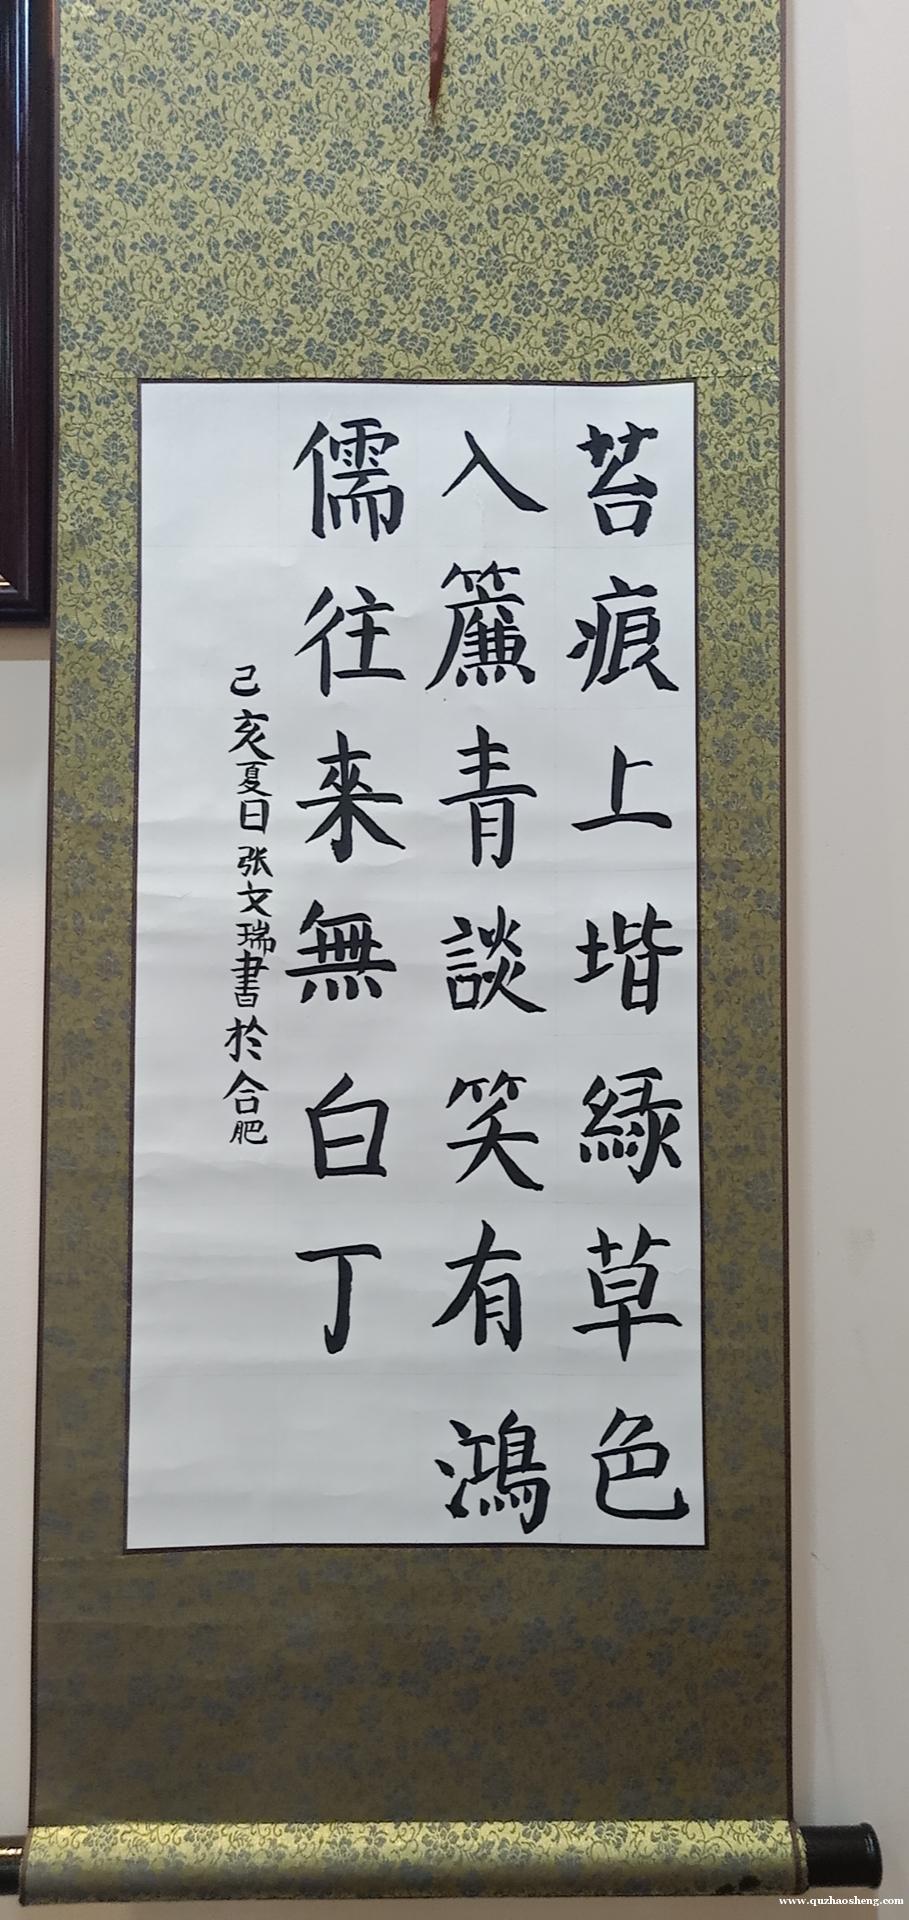 苔痕上堦緑草色
入簾青談笑有鴻
儒往來無白丁
己亥夏日张文瑞書於合肥
www.quzhaosheng.com